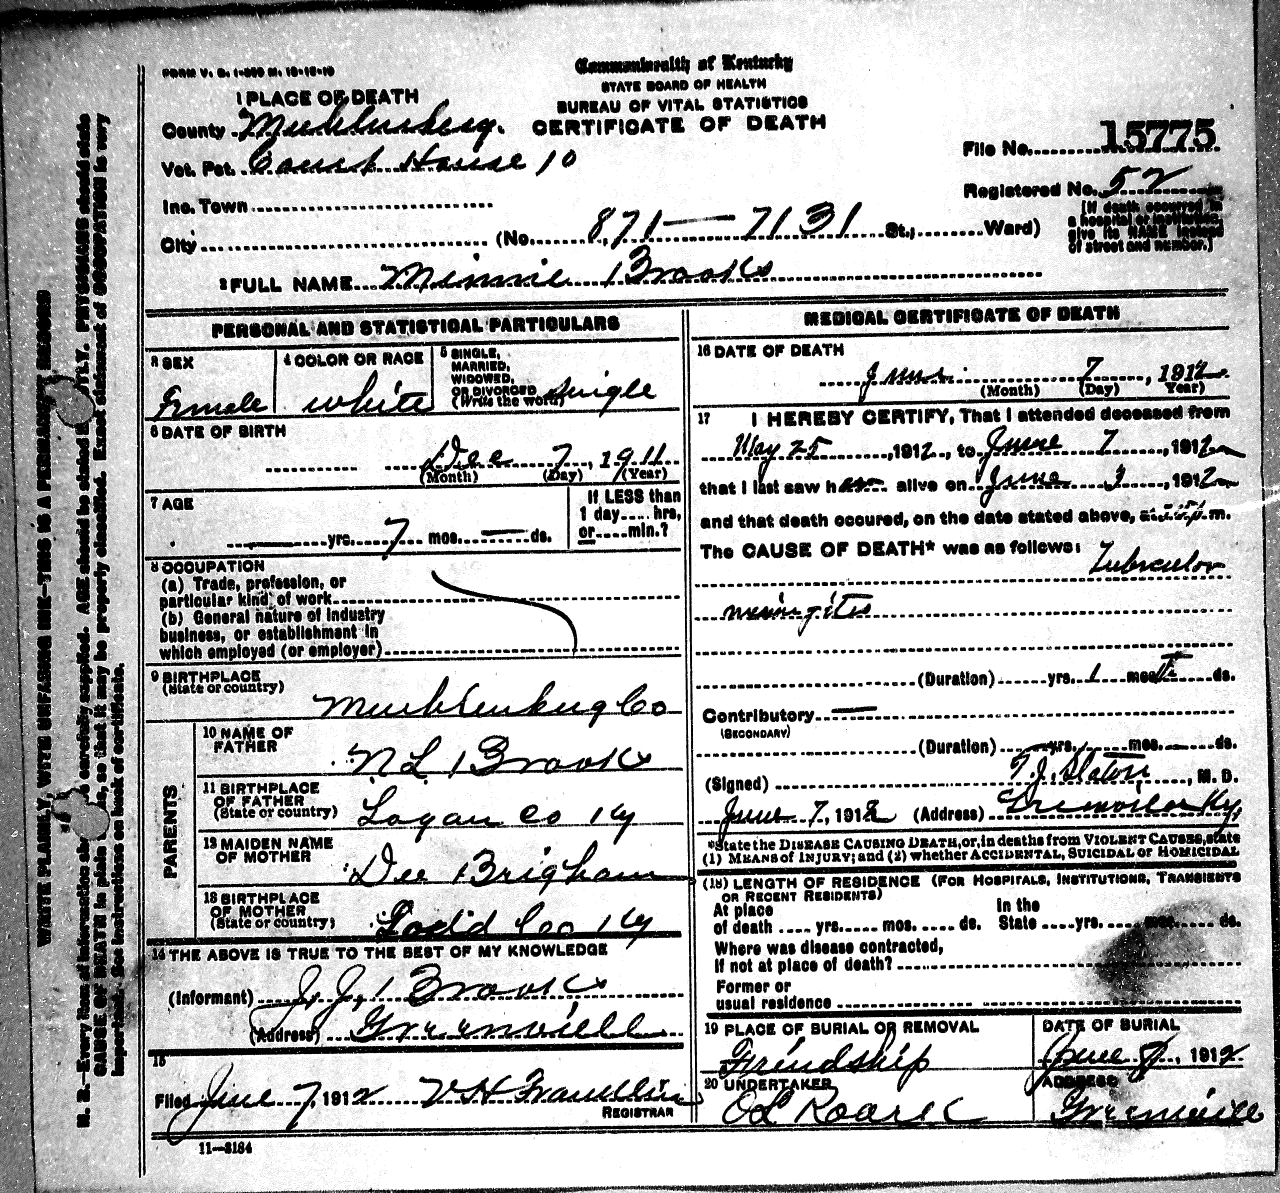 FORM V. S. 1-350 M. 10-18-10
Commonwealth of Kentucky
STATE BOARD OF HEALTH
BUREAU OF VITAL STATISTICS
CERTIFICATE OF DEATH
1 PLACE OF DEATH
County Muhlenberg.
Vot. Pct. Court House 10
Inc. Town
City (No. 871—7131 St., Ward)
File No. 15775
Registered No. 52
[If death occurred in
a hospital or institution,
give its NAME instead
of street and number.]
2 FULL NAME Minnie Brooks
PERSONAL AND STATISTICAL PARTICULARS
3 SEX
Female
4 COLOR OR RACE
white
5 SINGLE,
MARRIED,
WIDOWED,
OR DIVORCED
(Write the word)
Single
6 DATE OF BIRTH
Dec 7, 1911
(Month) (Day) (Year)
7 AGE
yrs. 7 mos. — ds.
If LESS than
1 day.....hrs,
or.....min.?
8 OCCUPATION
(a) Trade, profession, or
particular kind of work
(b) General nature of industry
business, or establishment in
which employed (or employer)
9 BIRTHPLACE
(State or country)
Muhlenburg Co
PARENTS
10 NAME OF
FATHER
N L Brooks
11 BIRTHPLACE
OF FATHER
(State or country)
Logan Co Ky
12 MAIDEN NAME
OF MOTHER
Dee Brigham
13 BIRTHPLACE
OF MOTHER
(State or country)
Todd Co Ky
14 THE ABOVE IS TRUE TO THE BEST OF MY KNOWLEDGE
(Informant) J. J. Brooks
(Address) Greenville
15
Filed June 7, 1912 REGISTRAR
11—3184
MEDICAL CERTIFICATE OF DEATH
16 DATE OF DEATH
June 7, 1912
(Month) (Day) (Year)
17 I HEREBY CERTIFY, That I attended deceased from
May 25, 1912, to June 7, 1912
that I last saw h alive on June 3, 1912
and that death occured, on the date stated above, at m.
The CAUSE OF DEATH* was as follows:
Tubercular
meningites
(Duration) yrs. 1 mos. ds.
Contributory —
(SECONDARY)
(Duration) yrs. mos. ds.
(Signed) T. J. Slaton, M. D.
June 7, 1912 (Address) Greenville Ky,
*State the DISEASE CAUSING DEATH, or, in deaths from VIOLENT CAUSES, state
(1) MEANS OF INJURY; and (2) whether ACCIDENTAL, SUICIDAL OF HOMICIDAL
(18) LENGTH OF RESIDENCE (FOR HOSPITALS, INSTITUTIONS, TRANSIENTS
OR RECENT RESIDENTS)
At place In the
of death yrs. mos. ds. State yrs. mos. ds.
Where was disease contracted,
If not at place of death?
Former or
usual residence
19 PLACE OF BURIAL OR REMOVAL
Friendship
DATE OF BURIAL
June 8, 1912
20 UNDERTAKER
O L Roark
ADDRESS
Greenville
WRITE PLAINLY, WITE UNFADING INK—THIS IS A PERMANENT RECORD
N. B.—Every item of information carefully supplied. AGE should be stated PHYSICIANS should state
CAUSE OF DEATH in plain so that it may be properly classified. Exact statement of OCCUPATION is very
important. See instructions on back of certificate.